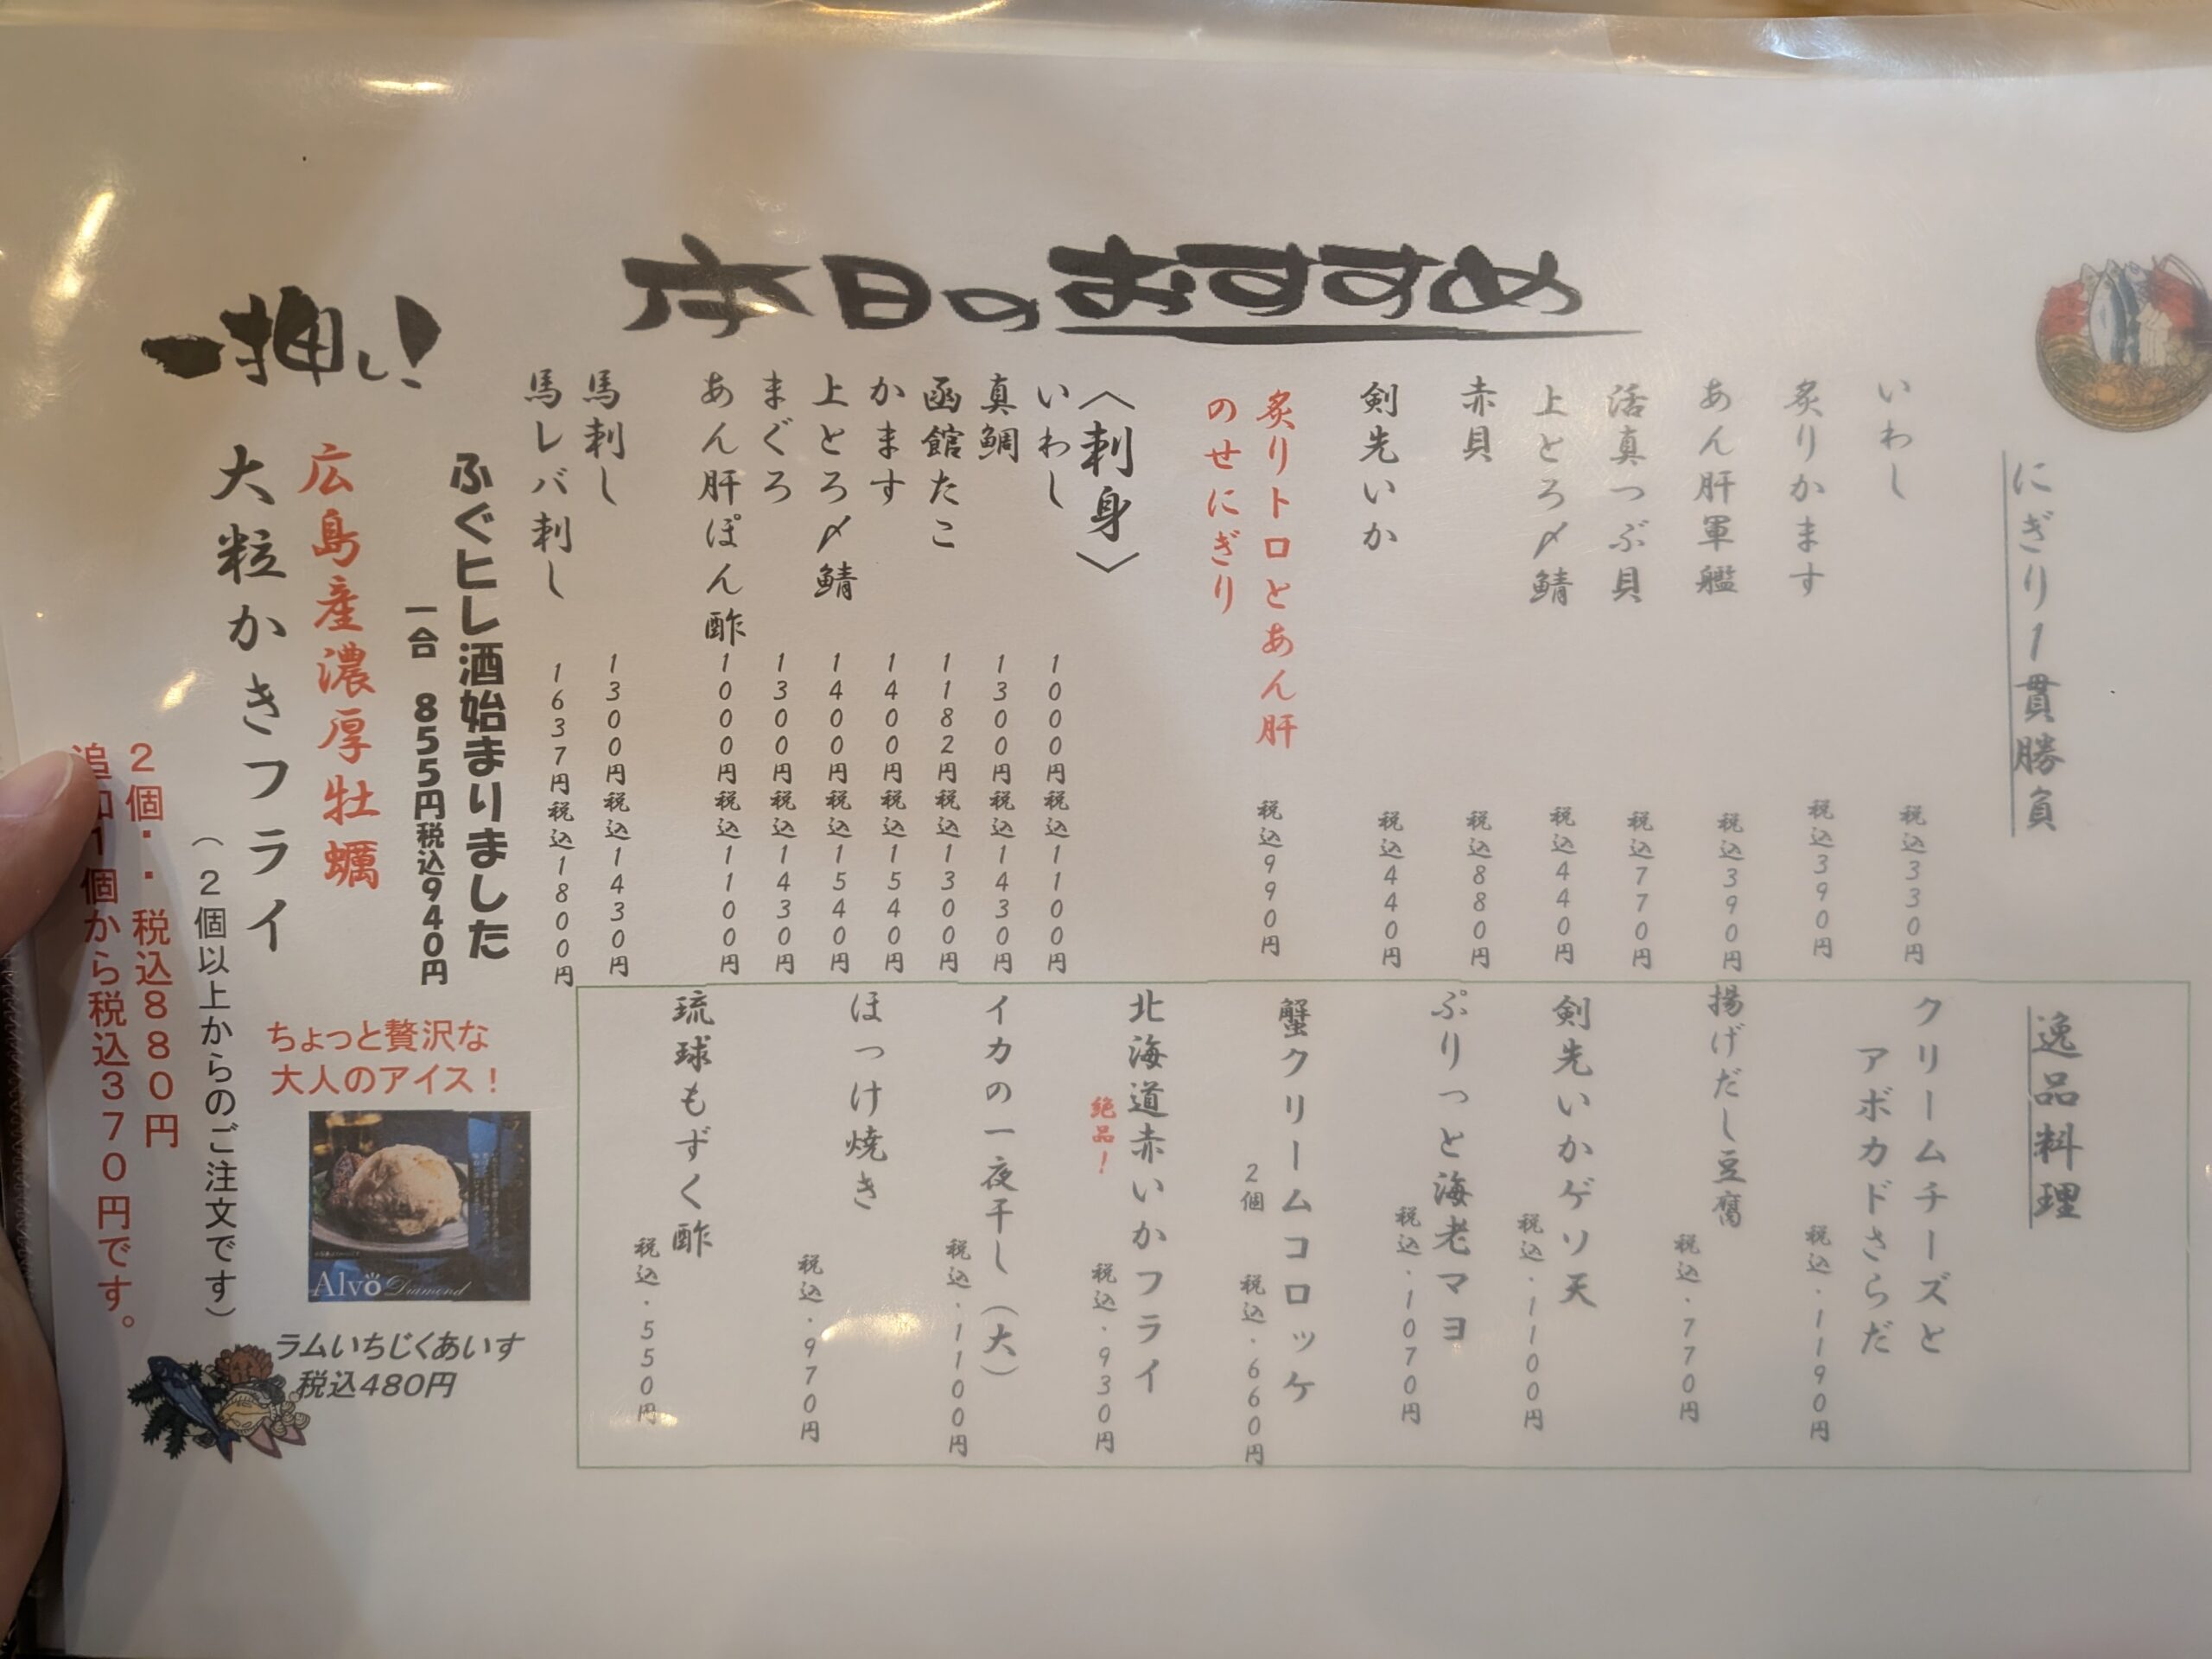 本日のおすすめ
にぎり1貫勝負
いわし 税込330円
炙りかます 税込390円
あん肝軍艦 税込390円
活真つぶ貝 税込770円
上とろ〆鯖 税込440円
赤貝 税込880円
剣先いか 税込440円
炙りトロとあん肝
のせにぎり 税込990円
〈刺身〉
いわし 1000円税込1100円
真鯛 1300円税込1430円
函館たこ 1182円税込1300円
かます 1400円税込1540円
上とろ〆鯖 1400円税込1540円
まぐろ 1300円税込1430円
あん肝ぽん酢 1000円税込1100円
馬刺し 1300円税込1430円
馬レバ刺し 1637円税込1800円
逸品料理
クリームチーズと
アボカドさらだ
税込・1190円
揚げだし豆腐
税込・770円
剣先いかゲソ天
税込・1100円
ぷりっと海老マヨ
税込・1070円
蟹クリームコロッケ
2個 税込・660円
北海道赤いかフライ
絶品! 税込・930円
イカの一夜干し(大)
税込・1100円
ほっけ焼き
税込・970円
琉球もずく酢
税込・550円
一押し!
ふぐヒレ酒始まりました
一合 855円税込940円
広島産濃厚牡蠣
大粒かきフライ
(2個以上からのご注文です)
2個・・税込880円
追加1個から税込370円です。
ちょっと贅沢な
大人のアイス!
Alvo Diamond
ラムいちじくあいす
税込480円